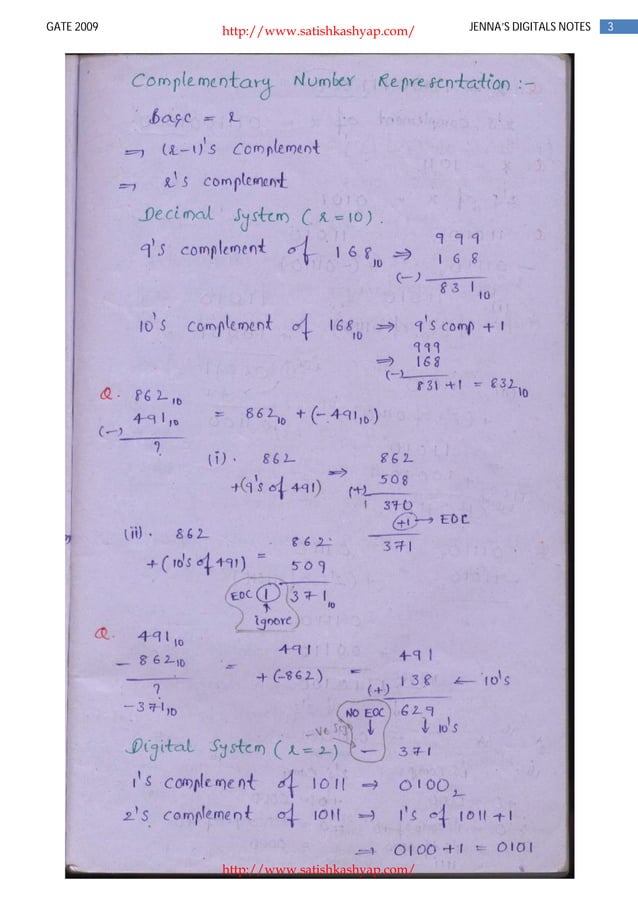 GATE 2009 http://www.satishkashyap.com/ JENNA'S DIGITALS NOTES 3
Complementary Number Representation :-
Base = r
⇒ (r-1)'s complement
⇒ r's complement
Decimal System (r=10).
9's complement of 168₁₀ ⇒ 9 9 9
1 6 8
(-)
8 3 1₁₀
10's complement of 168₁₀ ⇒ 9's comp + 1
⇒ 999
168
(-)
831 + 1 = 832₁₀
Q. 862₁₀
491₁₀ = 862₁₀ + (-491₁₀)
(-)
?
(i). 862 ⇒ 862
+(9's of 491) (+) 508
1 370
+1 → EOC
371
(ii). 862
+ (10's of 491) = 862
509
EOC 1 371₁₀
ignore
Q. 491₁₀
- 862₁₀ = 491 = 491
+ (-862) (+) 138 ← 10's
?
-371₁₀
NO EOC 629
↓ ↓ 10's
-ve sign - 371
Digital System (r=2)
1's complement of 1011 ⇒ 0100₂
2's complement of 1011 ⇒ 1's of 1011 + 1
⇒ 0100 + 1 = 0101
http://www.satishkashyap.com/